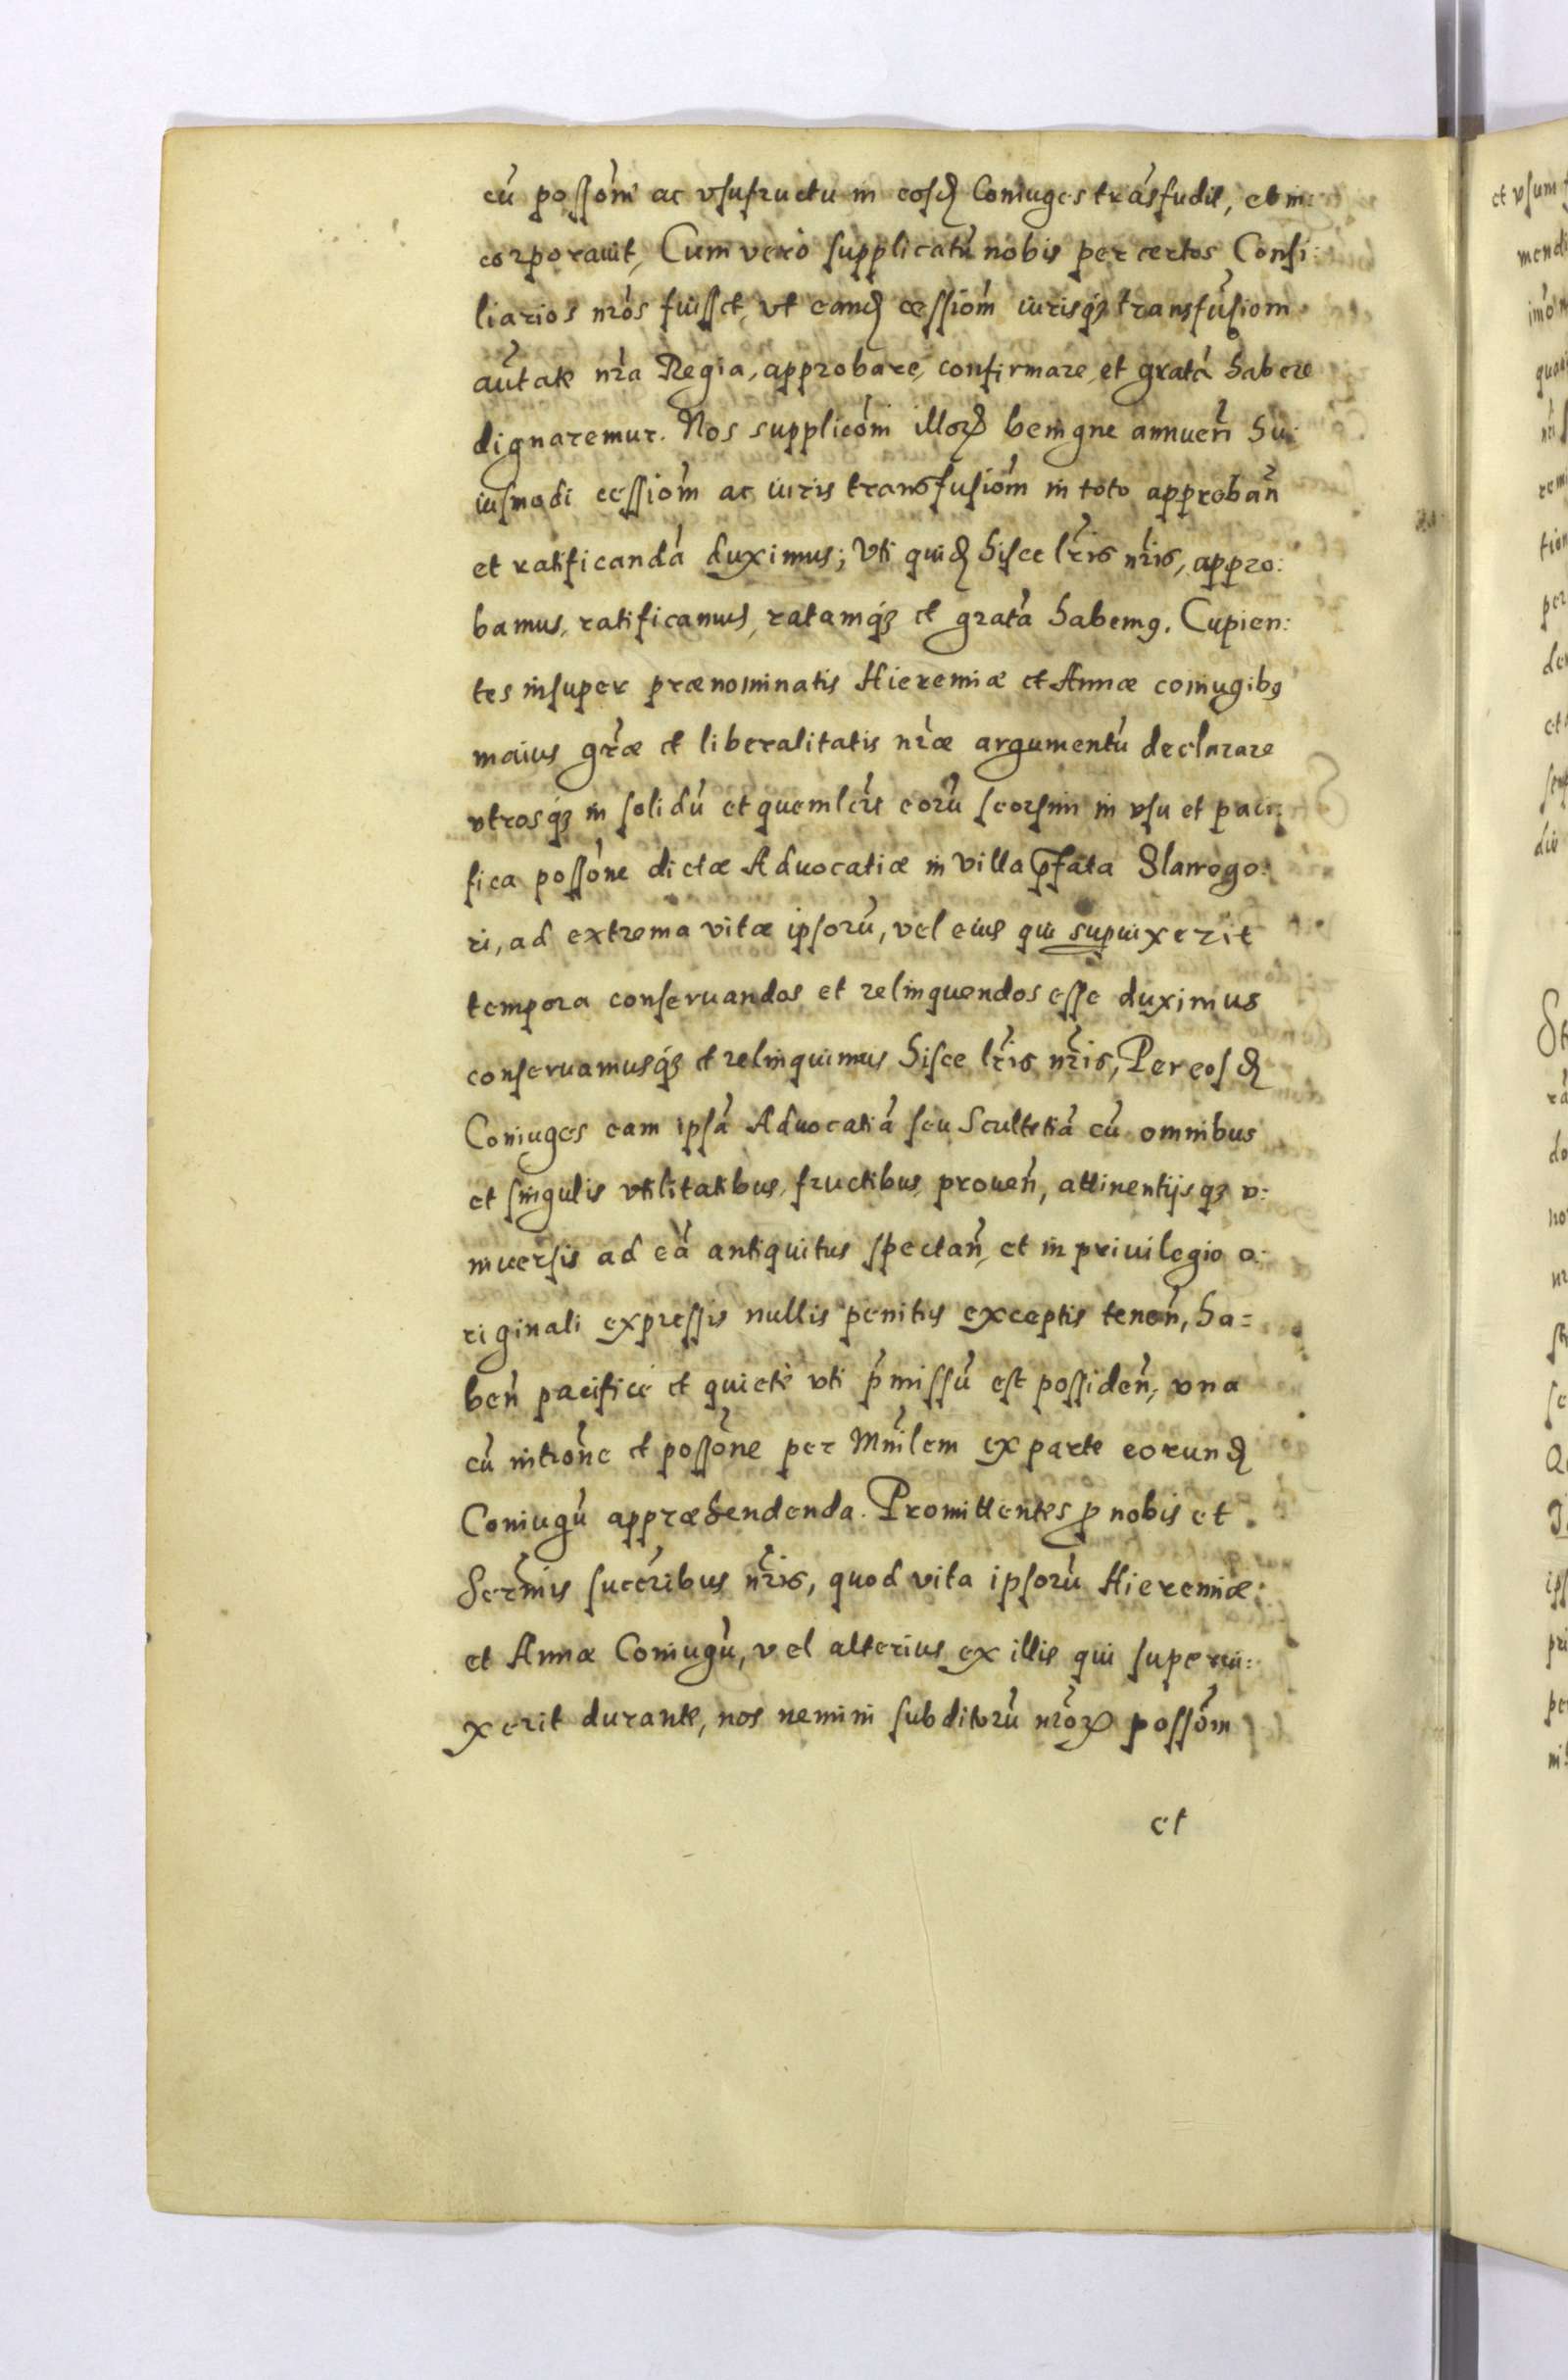 cū possōm ac vsufructu in eosd Coniuges trāsfudit, et in:
corporauit, Cum vero supplicatū nobis per certos Consi:
liarios nrōs fuisset, vt eand cessiōm iurisq₃ transfusiōm
autāte nrā Regia, approbare, confirmare, et gratā habere
dignaremur. Nos suppliciōm illoꝝ benigne annuen̄ hu:
iusmodi cessiōm ac iuris transfusiōm in toto approban̄
et ratificandā duximus; Vti quid hisce lrīs nrīs, appro:
bamus, ratificamus, ratamq₃ et gratā habemꝯ. Cupien:
tes insuper prænominatis Hieremiæ et Annæ coniugibꝯ
maius grāe et liberalitatis nrāe argumentū declarare
vtrosq₃ in solidū et quemlibet eorū seorsim in vsu et paci:
fica possōne dictæ Aduocatiæ in villa p̄fata Starrogo:
ri, ad extrema vitæ ipsorū, vel eius qui supuixerit
tempora conseruandos et relinquendos esse duximus
conseruamusq₃ et relinquimus hisce lrīs nrīs, Per eosd
Coniuges eam ipsā Aduocatiā seu Scultetiā cū omnibus
et singulis vtilitatibus, fructibus, prouen̄, attinentijsq₃ v:
niuersis ad eā antiquitus spectan̄, et in priuilegio o:
riginali expressis nullis penitus exceptis tenen̄, ha=
ben̄ pacificè et quietè vti p̄missū est possiden̄, vna
cū intrōne et possōne per Mnīlem ex parte eorund
Coniugū appræhendenda. Promittentes ꝓ nobis et
Sermīs succrībus nrīs, quod vita ipsorū Hieremiæ:
et Annæ Coniugū, vel alterius ex illis qui superui:
xerit durante, nos nemini subditorū nrōꝝ possōm
et